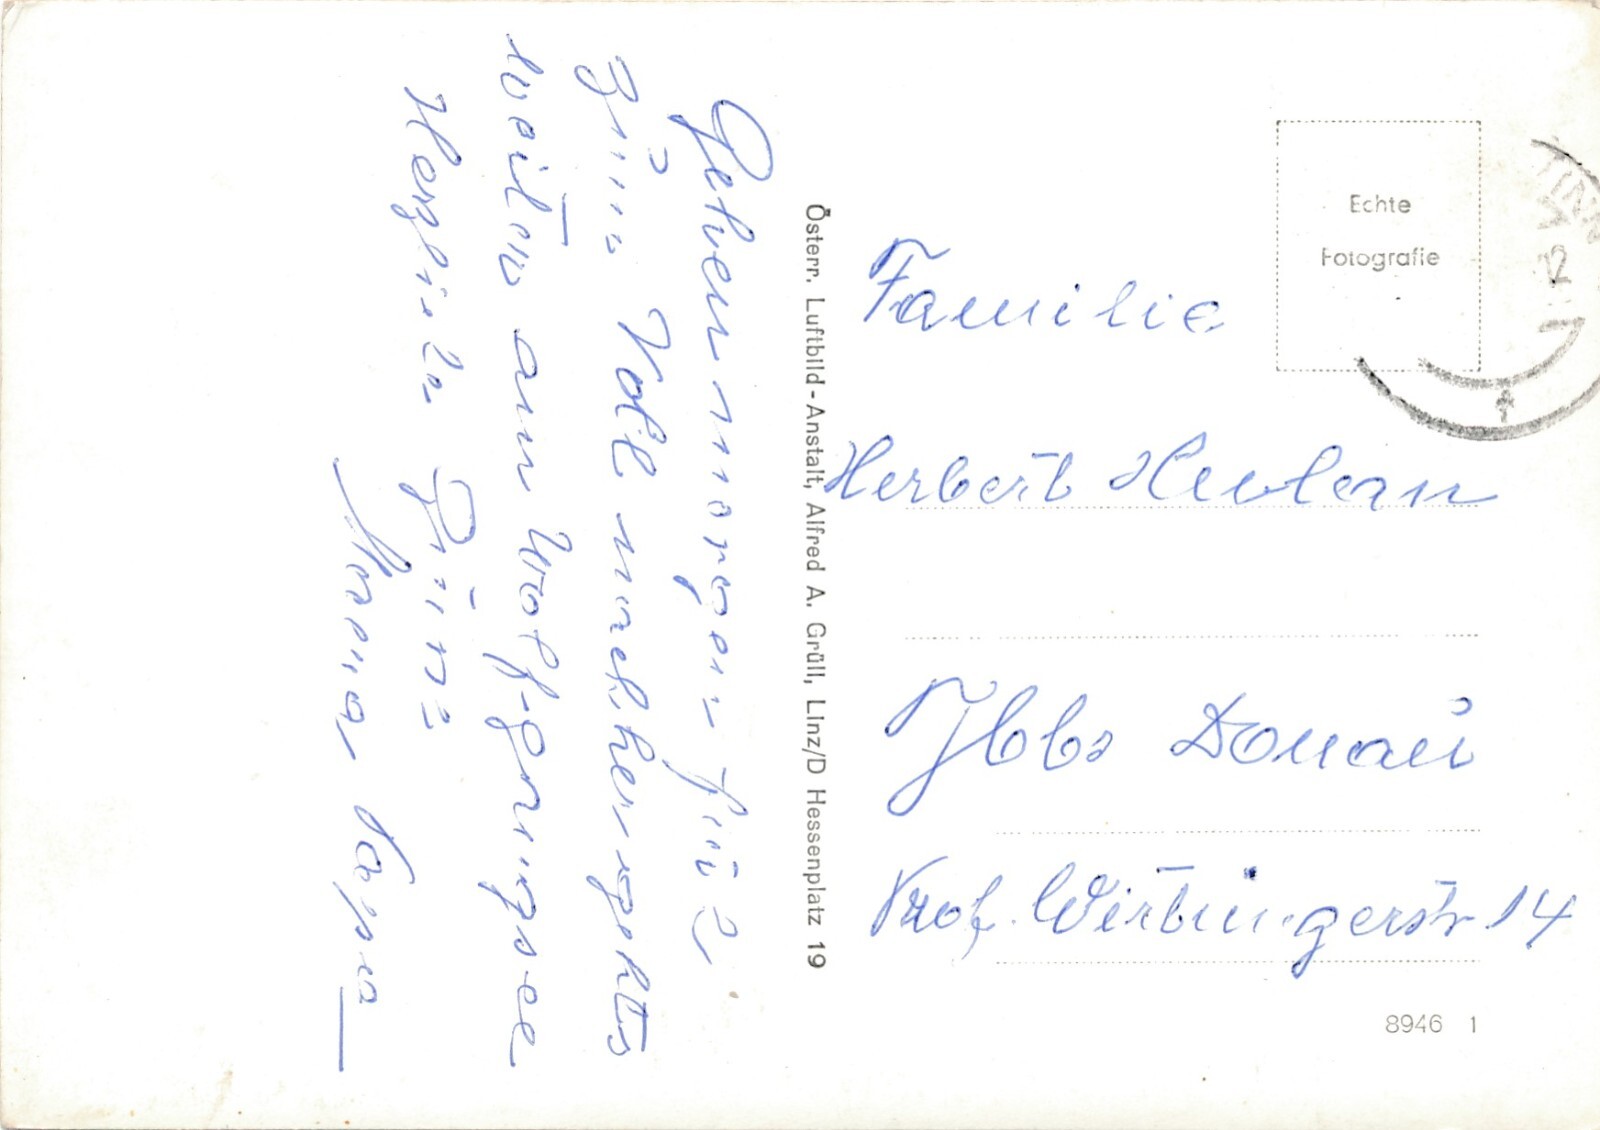 Gehen morgen früh
zum Völl nachher gehts
weiter am Wolfgangsee
Herzliche Grüße
Mama Papa
Österr. Luftbild-Anstalt, Alfred A. Grüll, Linz/D Hessenplatz 19
Echte
Fotografie
12
Familie
Herbert
Ybbs Donau
Prof. Wirtingerstr 14
8946 1